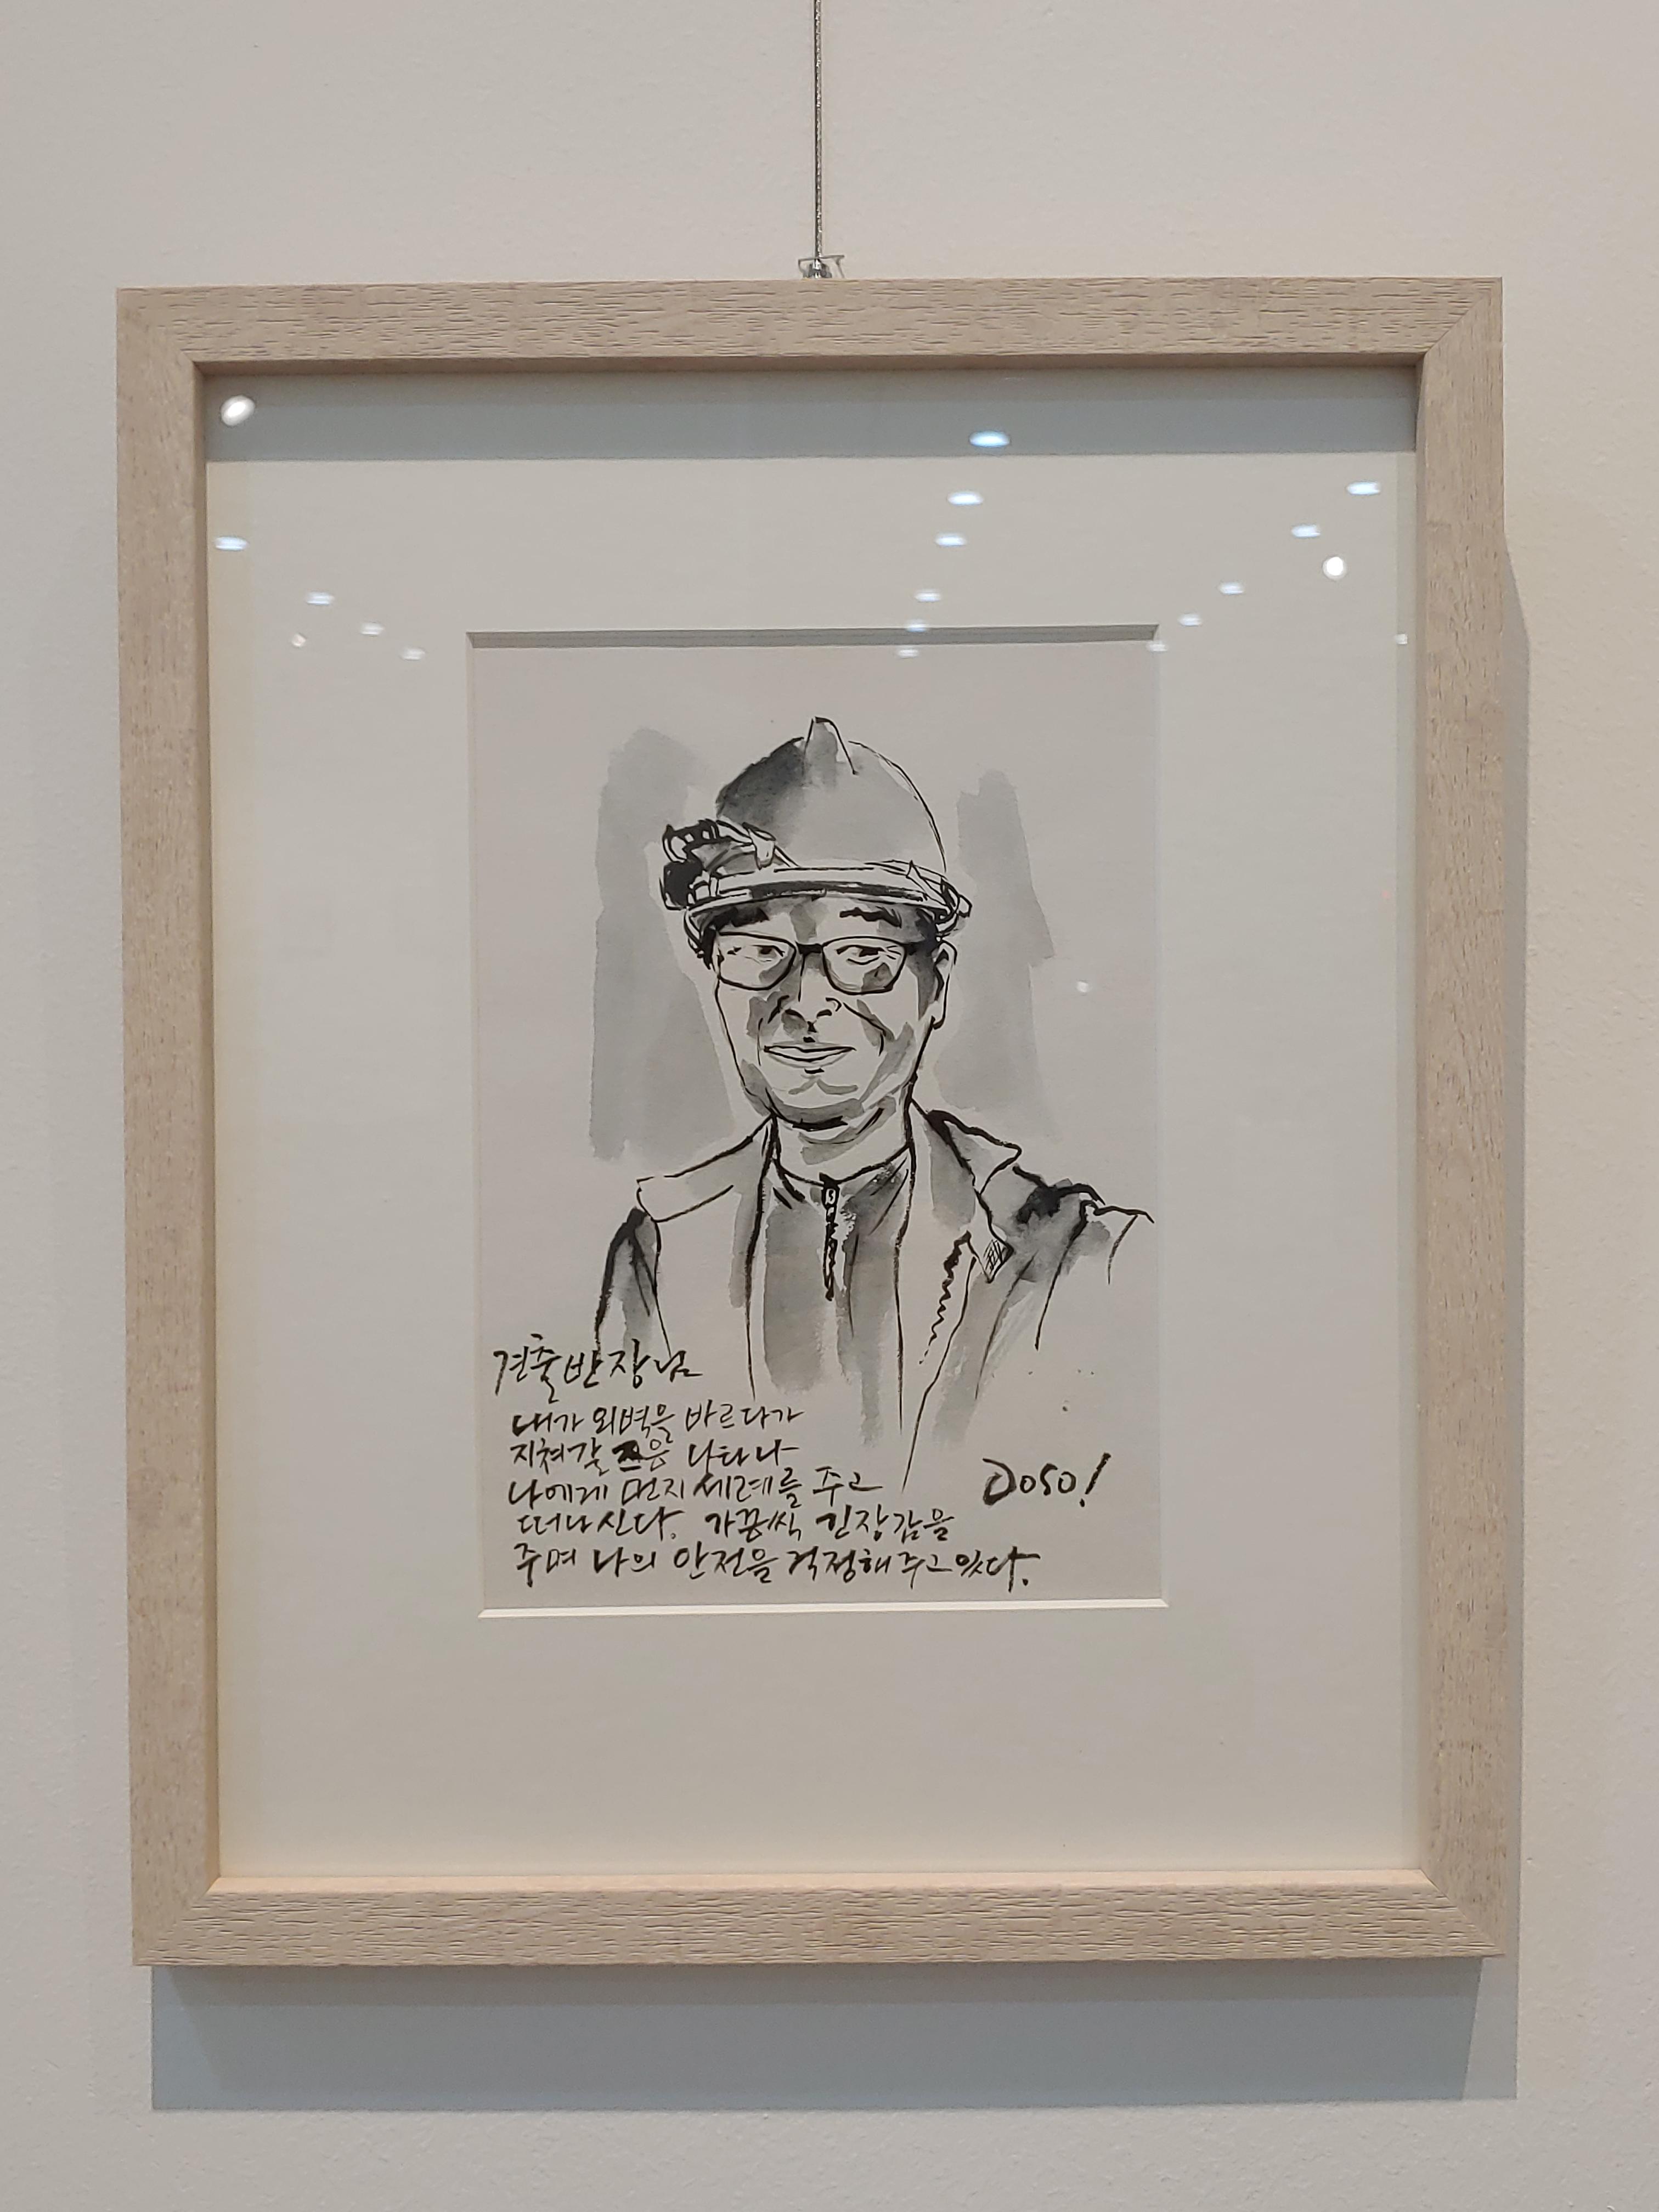 견출반장님
내가 외벽을 바르다가
지쳐갈 쯔음 나타나
나에게 먼지 세례를 주고
떠나신다. 가끔씩 긴장감을
주며 나의 안전을 걱정해 주고 있다.
DOSO!